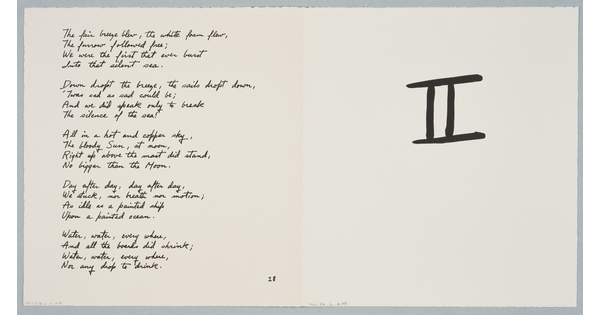 The fair breeze blew, the white foam flew,
The furrow followed free;
We were the first that ever burst
Into that silent sea.
Down dropt the breeze, the sails dropt down,
'Twas sad as sad could be;
And we did speak only to break
The silence of the sea!
All in a hot and copper sky,
The bloody Sun, at noon,
Right up above the mast did stand,
No bigger than the Moon.
Day after day, day after day,
We stuck, nor breath nor motion;
As idle as a painted ship
Upon a painted ocean.
Water, water, every where,
And all the boards did shrink;
Water, water, every where,
Nor any drop to drink.
28
II